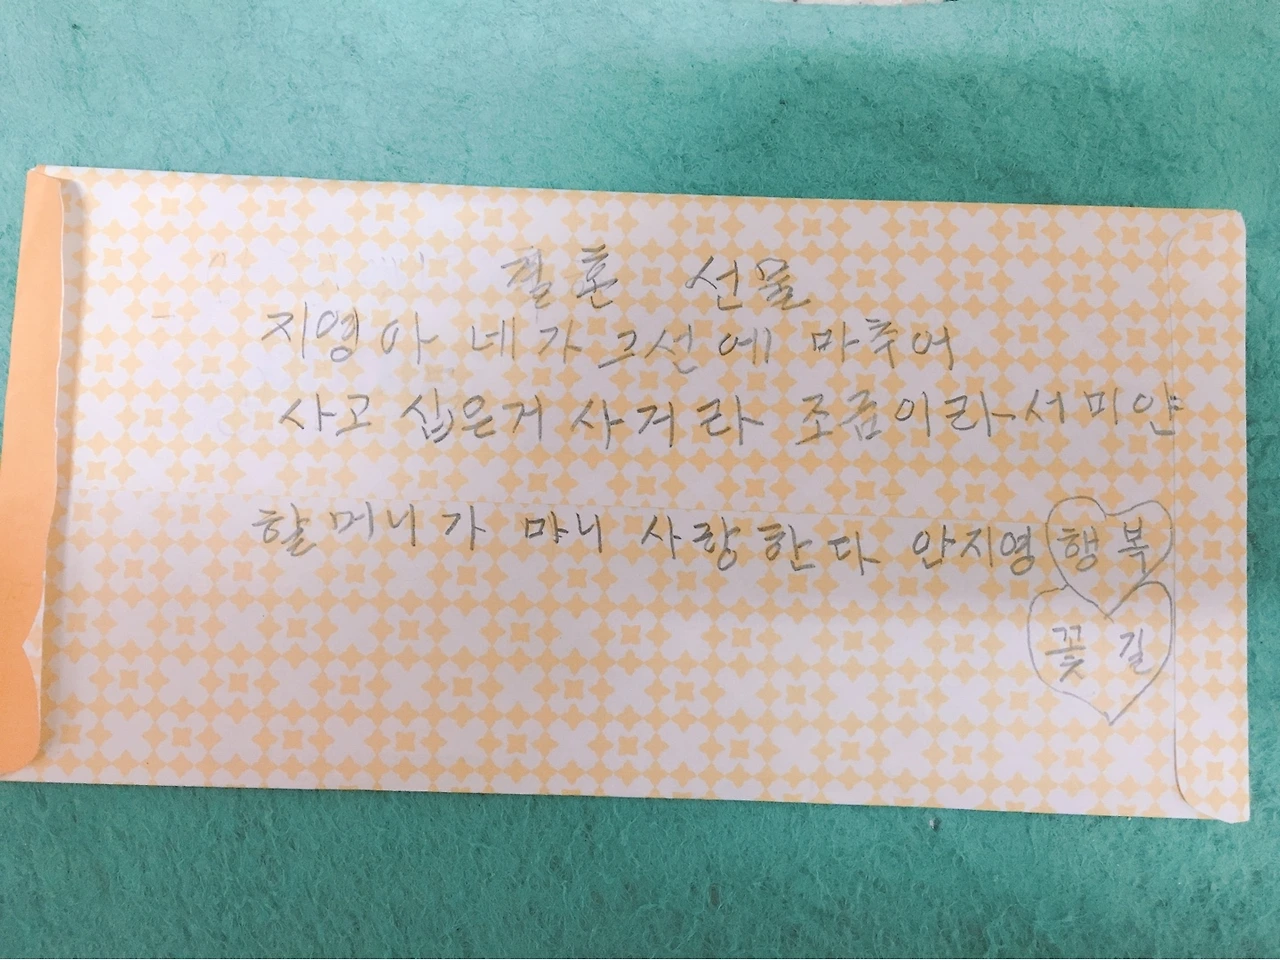 결혼 선물
지영아 네가 그선에 마추어
사고 십은거 사거라 조금이라서 미안
할머니가 먀니 사랑한다 안지영 행복
꽃길